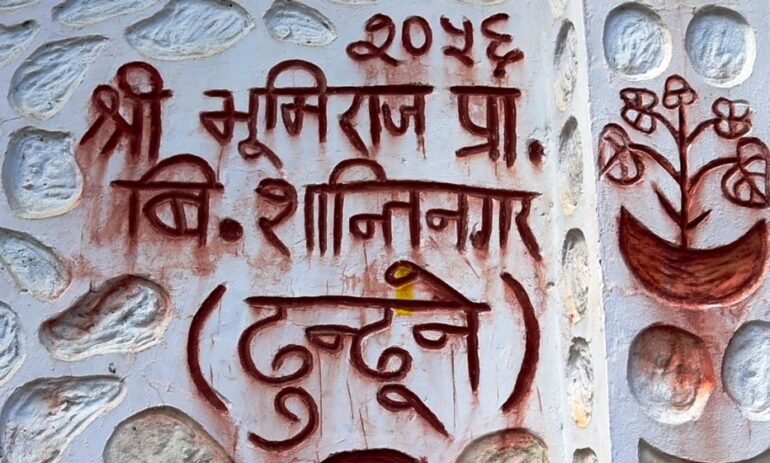 २०५६
श्री भूमिराज प्रा.
बि. शान्तिनगर
(ढुन्ढूने)